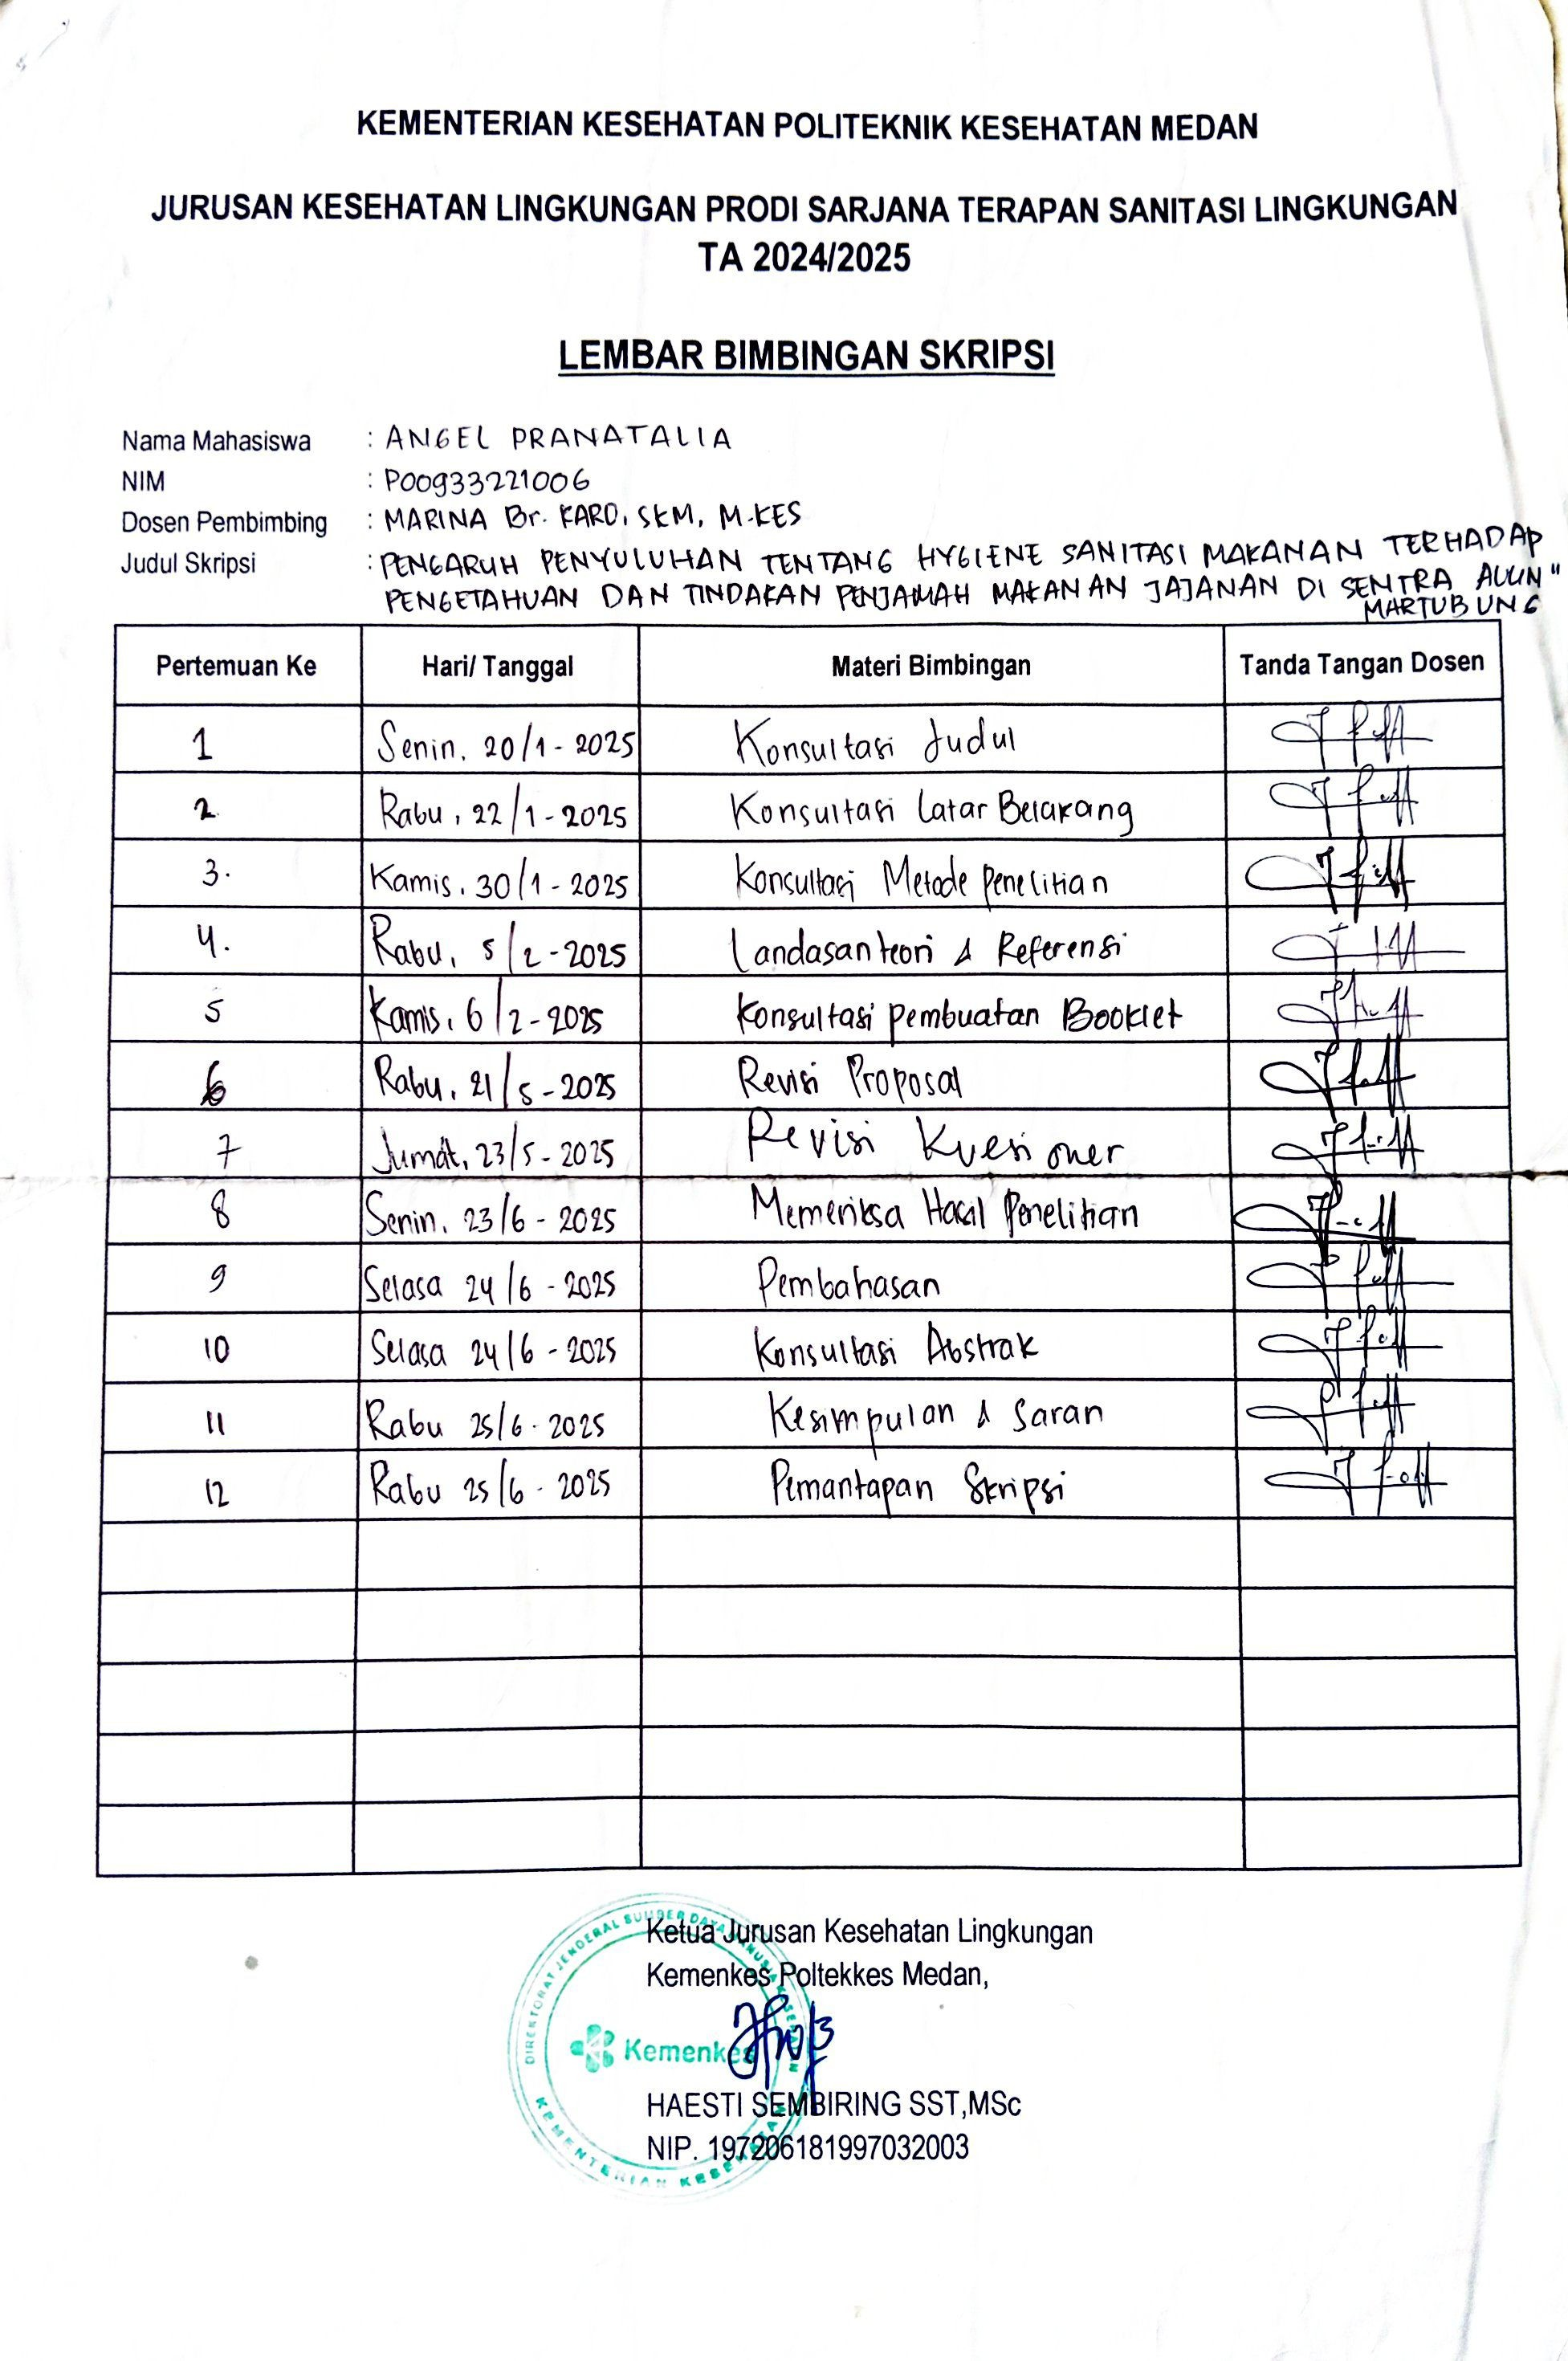 KEMENTERIAN KESEHATAN POLITEKNIK KESEHATAN MEDAN
JURUSAN KESEHATAN LINGKUNGAN PRODI SARJANA TERAPAN SANITASI LINGKUNGAN
TA 2024/2025
LEMBAR BIMBINGAN SKRIPSI
Nama Mahasiswa : ANGEL PRANATALIA
NIM : P00933221006
Dosen Pembimbing : MARINA Br. KARO, SKM, M.KES
Judul Skripsi : PENGARUH PENYULUHAN TENTANG HYGIENE SANITASI MAKANAN TERHADAP
PENGETAHUAN DAN TINDAKAN PENJAMAH MAKANAN JAJANAN DI SENTRA ALUN"
MARTUBUNG
Pertemuan Ke Hari/ Tanggal Materi Bimbingan Tanda Tangan Dosen
1 Senin, 20/1-2025 Konsultasi Judul
2. Rabu, 22/1-2025 Konsultasi Latar Belakang
3. Kamis, 30/1-2025 Konsultasi Metode Penelitian
4. Rabu, 5/2-2025 Landasan teori & Referensi
5 Kamis, 6/2-2025 Konsultasi pembuatan Booklet
6 Rabu, 21/5-2025 Revisi Proposal
7 Jumat, 23/5-2025 Revisi Kuesioner
8 Senin, 23/6-2025 Memeriksa Hasil Penelitian
9 Selasa 24/6-2025 Pembahasan
10 Selasa 24/6-2025 Konsultasi Abstrak
11 Rabu 25/6-2025 Kesimpulan & Saran
12 Rabu 25/6-2025 Pemantapan Skripsi
Ketua Jurusan Kesehatan Lingkungan
Kemenkes Poltekkes Medan,
DIREKTORAT JENDERAL SUMBER DAYA MANUSIA KESEHATAN
Kemenkes
KEMENTERIAN KESEHATAN
HAESTI SEMBIRING SST,MSc
NIP. 197206181997032003